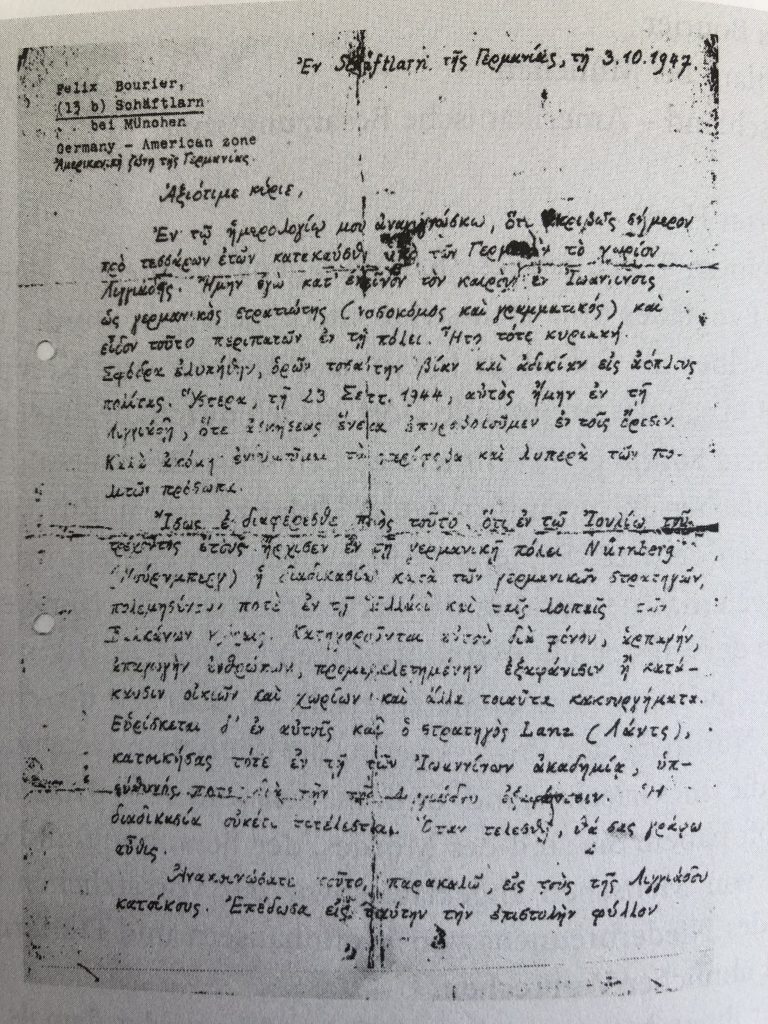 Ἐν Schäftlarn τῆς Γερμανίας, τῇ 3.10.1947.
Felix Bourier,
(13 b) Schäftlarn
bei München
Germany - American zone
Ἀμερικανικὴ ζώνη τῆς Γερμανίας.
Ἀξιότιμε κύριε,
Ἐν τῷ ἡμερολογίῳ μου ἀναγιγνώσκω, ὅτι ἀκριβῶς σήμερον
πρὸ τεσσάρων ἐτῶν κατεκαύθη ὑπὸ τῶν Γερμανῶν τὸ χωρίον
Λιγγιάδης. Ἤμην ἐγὼ κατ' ἐκεῖνον τὸν καιρὸν ἐν Ἰωαννίνοις
ὡς γερμανικὸς στρατιώτης (νοσοκόμος καὶ γραμματικός) καὶ
εἶδον τοῦτο περιπατῶν ἐν τῇ πόλει. Ἦτο τότε κυριακή.
Σφόδρα ἐλυπήθην, ὁρῶν τοσαύτην βίαν καὶ ἀδικίαν εἰς ἀόπλους
πολίτας. Ὕστερα, τῇ 23 Σεπτ. 1944, αὐτὸς ἤμην ἐν τῇ
Λιγγιάδῃ, ὅτε ἀσκήσεως ἕνεκα ἐπυροβολοῦμεν ἐν τοῖς ὄρεσιν.
ἀκόμη καὶ λυπερὰ τῶν πο-
λιτῶν πρόσωπα.
Ἴσως ἐνδιαφέρεσθε πρὸς τοῦτο ὅτι ἐν τῷ Ἰουλίῳ τοῦ
τρέχοντος ἔτους ἤρχισεν ἐν τῇ γερμανικῇ πόλει Nürnberg
(Νούρνμπεργ) ἡ διαδικασία κατὰ τῶν γερμανικῶν στρατηγῶν,
πολεμησάντων ποτὲ ἐν τῇ Ἑλλάδι καὶ ταῖς λοιπαῖς τῶν
Βαλκάνων χώραις. Κατηγοροῦνται αὐτοὶ διὰ φόνον, ἁρπαγήν,
ἀπαγωγὴν ἀνθρώπων, προμεμελετημένην ἐξαφάνισιν ἢ κατά-
καυσιν οἰκιῶν καὶ χωρίων καὶ ἄλλα τοιαῦτα κακουργήματα.
Εὑρίσκεται δ' ἐν αὐτοῖς καὶ ὁ στρατηγὸς Lanz (Λάντς),
κατοικήσας τότε ἐν τῇ τῶν Ἰωαννίνων ἀκαδημίᾳ, ὑπ-
εύθυνός ποτε διὰ τὴν τῆς Λιγγιάδου ἐξαφάνισιν. Ἡ
διαδικασία οὐκέτι τετέλεσται. Ὅταν τελεσθῇ, θά σας γράφω
αὖθις.
Ἀνακοινώσατε τοῦτο, παρακαλῶ, εἰς τοὺς τῆς Λιγγιάδου
κατοίκους. Ἐπέδωσα εἰς ταύτην τὴν ἐπιστολὴν φύλλον